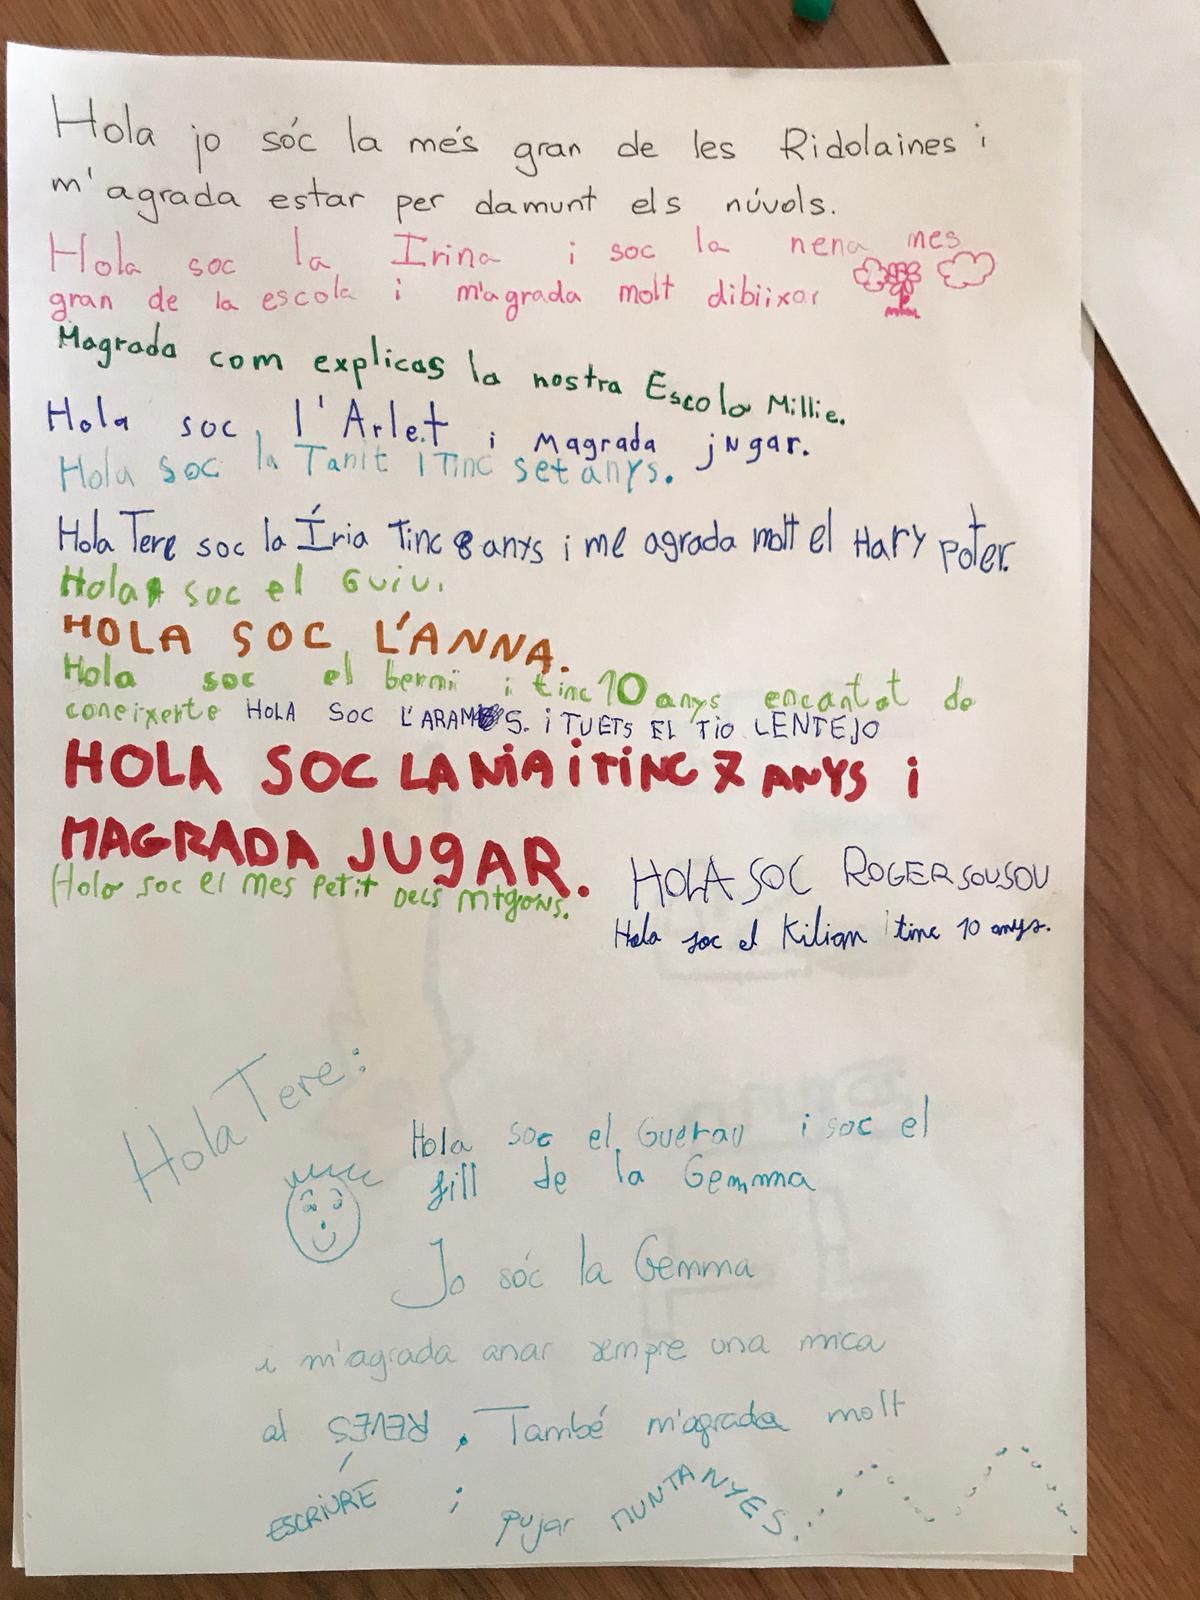 Hola jo sóc la més gran de les Ridolaines i
m'agrada estar per damunt els núvols.
Hola soc la Irina i soc la nena mes
gran de la escola i m'agrada molt dibiixar
Magrada com explicas la nostra Escola Millie.
Hola soc l'Arlet i Magrada jugar.
Hola soc la Tanit i Tinc set anys.
Hola Tere soc la Íria Tinc 8 anys i me agrada molt el Hary Poter.
Hola soc el Guiu.
HOLA SOC L'ANNA.
Hola soc el bermi i tinc 10 anys encantat de
coneixerte HOLA SOC L'ARAMIS. i TU ETS EL TIO LENTEJO
HOLA SOC LA NIA i TINC 7 ANYS i
MAGRADA JUGAR.
Hola soc el mes petit DELS mtgons.
HOLA SOC ROGER SOUSOU
Hola soc el Kilian i tinc 10 anys.
Hola Tere:
Hola soc el Guerau i soc el
fill de la Gemma
Jo sóc la Gemma
i m'agrada anar sempre una mica
al REVES. També m'agrada molt
ESCRIURE i pujar MUNTANYES.